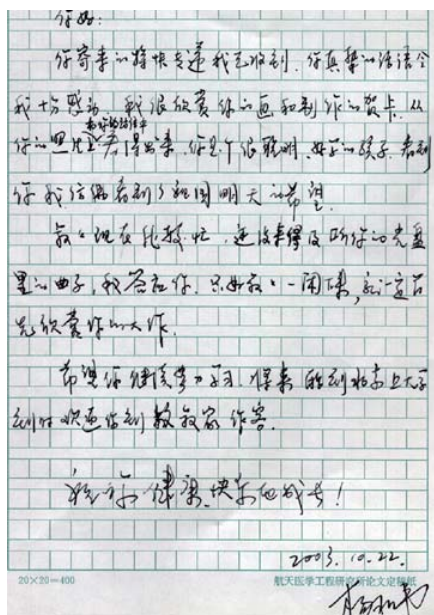 你好:
你寄来的特快专递我已收到。你真挚的话语令
我十分感动,我很欣赏你的画和制作的贺卡。从
你的照片上和你的
看得出来,你是个很聪明、好学的孩子。看到
你我仿佛看到了祖国明天的希望。
叔叔现在比较忙,还没来得及听你的光盘
里的曲子,我答应你,只要叔叔一闲下来,就一定首
先欣赏你的大作。
希望你继续努力学习,将来能到北京上大学
到时欢迎你到叔叔家作客。
祝你健康、快乐地成长!
2003.10.22.
20×20=400
航天医学工程研究所论文定稿纸